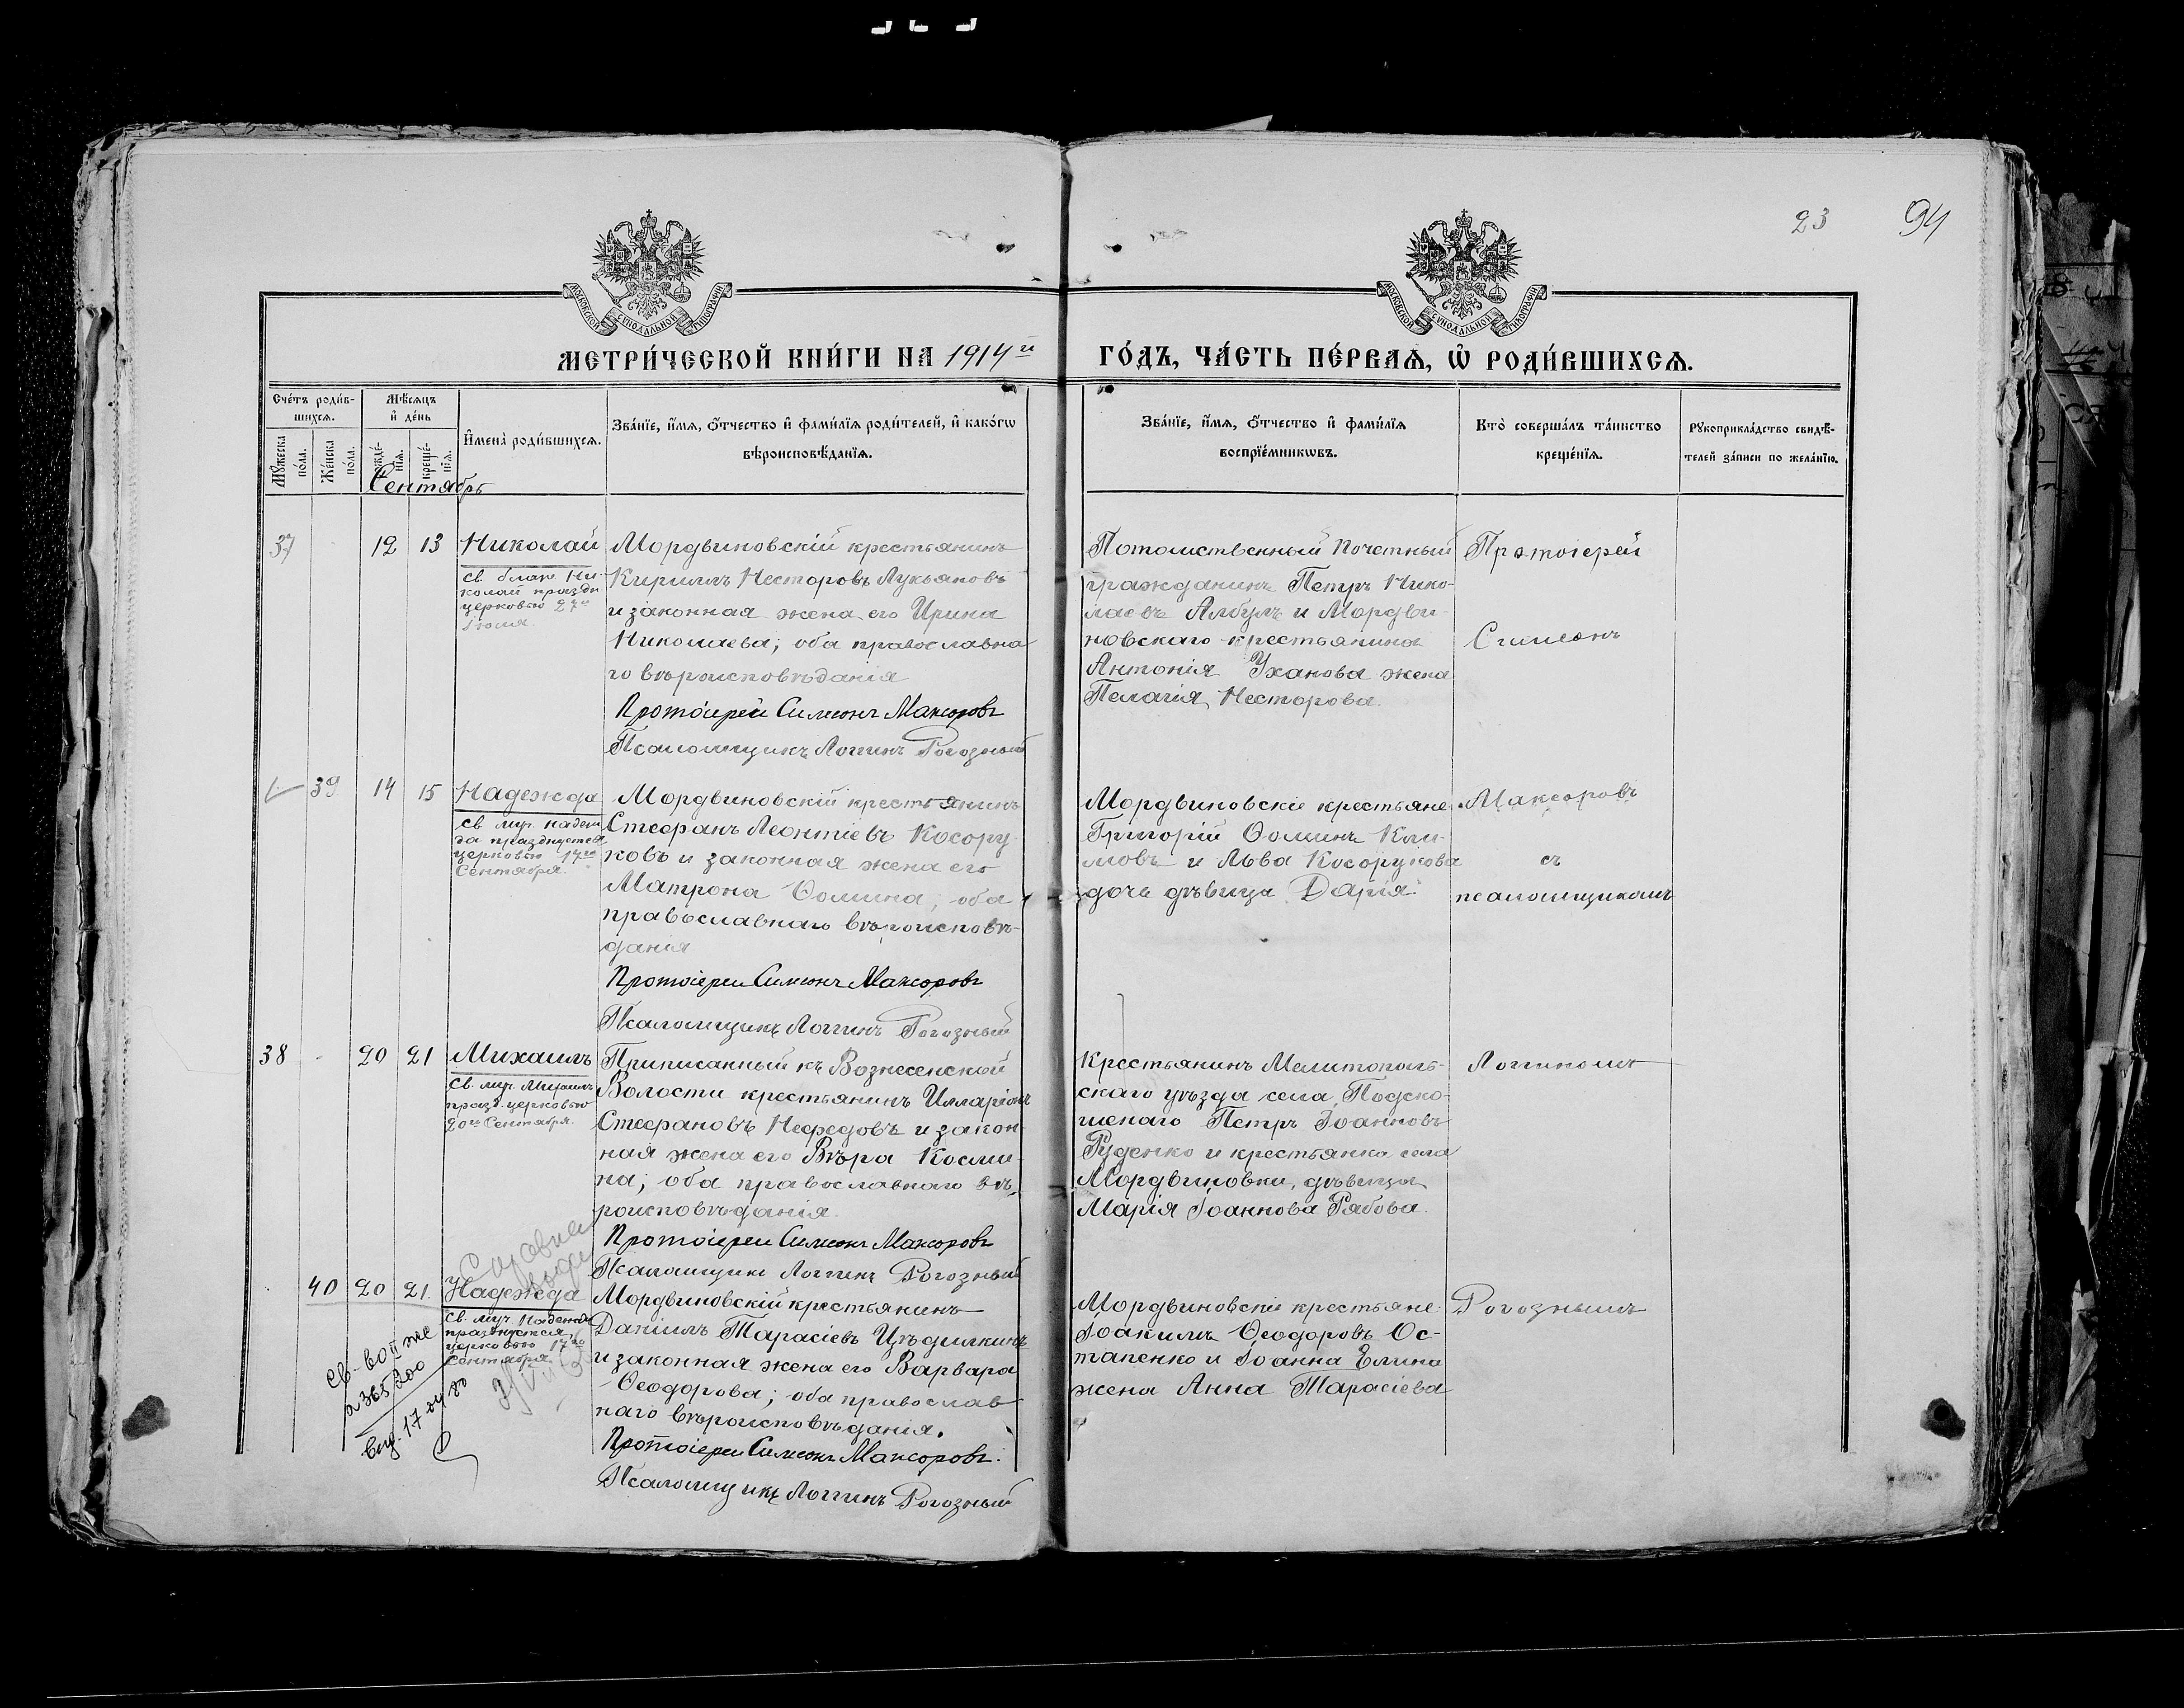 23 94
МОСКОВСКОЙ СѴНОДАЛЬНОЙ ТИПОГРАФІИ
МОСКОВСКОЙ СѴНОДАЛЬНОЙ ТИПОГРАФІИ
МЕТРИ́ЧЕСКОЙ КНИ́ГИ НА 1914й
ГО́ДЪ, ЧА́СТЬ ПЕ́РВАѦ, Ѡ҆ РОДИ́ВШИХСѦ.
Сче́тъ роди́в-
шихсѧ.
Мꙋ́жеска по́ла.
Же́нска по́ла.
Мѣ́сѧцъ
и҆ де́нь
рожде́-
нїѧ.
креще́-
нїѧ.
И҆мена̀ роди́вшихсѧ.
Зва́нїе, и҆́мѧ, ѻ҆́тчество и҆ фами́лїѧ роди́телей, и҆ како́гѡ
вѣроисповѣ́данїѧ.
Зва́нїе, и҆́мѧ, ѻ҆́тчество и҆ фами́лїѧ
воспрїе́мникѡвъ.
Кто̀ соверша́лъ та́инство
креще́нїѧ.
Рꙋкоприкла́дство свидѣ́-
телей за́писи по жела́нїю.
Сентябрь
37 12 13 Николай
Св. благ. Ни-
колай праздн
церковью 27го
Іюля.
Мордвиновскій крестьянинъ
Кириллъ Несторовъ Лукьяновъ
и законная жена его Ирина
Николаева; оба православна
го вѣроисповѣданія
Протоіерей Симеонъ Максоровъ
Псаломщикъ Логгинъ Рогозный
Потомственный Почетный
гражданинъ Петръ Нико-
лаевъ Албулъ и Мордви-
новскаго крестьянина
Антонія Уханова жена
Пелагія Несторова.
Протоіерей
Симеонъ
39 14 15 Надежда
Св. муч. Надеж
да празднуется
церковью 17го
Сентября.
Мордвиновскій крестьянинъ
Стефанъ Леонтіевъ Косору-
ковъ и законная жена его
Матрона Ѳомина; оба
православнаго вѣроисповѣ-
данія
Протоіерей Симеонъ Максоровъ
Псаломщикъ Логгинъ Рогозный
Мордвиновскіе крестьяне
Григорій Ѳоминъ Кли-
мовъ и Льва Косорукова
дочь дѣвица Дарія.
Максоровъ
съ
псаломщикомъ
38 20 21 Михаилъ
Св. муч. Михаилъ
празд. церковью
20го Сентября.
Приписанный къ Вознесенской
Волости крестьянинъ Илларіонъ
Стефановъ Нефедовъ и закон-
ная жена его Вѣра Косми-
на; оба православнаго вѣ-
роисповѣданія.
Протоіерей Симеонъ Максоровъ
Псаломщикъ Логгинъ Рогозный
Крестьянинъ Мелитополь-
скаго уѣзда села
Петръ Іоанновъ
Руденко и крестьянка села
Мордвиновки, дѣвица
Марія Іоаннова Рябова.
Логгиномъ
40 20 21. Надежда
Св. муч. Надежда
празднуется
церковью 17го
Сентября.
Св-во II же
365200
выд. 17
Мордвиновскій крестьянинъ
Даніилъ Тарасіевъ Цѣдилкинъ
и законная жена его Варвара
Ѳеодорова; оба православ
наго вѣроисповѣданія.
Протоіерей Симеонъ Максоровъ.
Псаломщикъ Логгинъ Рогозный
Мордвиновскіе крестьяне:
Іоакимъ Ѳеодоровъ Ос-
тапенко и Іоанна Елина
жена Анна Тарасіева
Рогознымъ